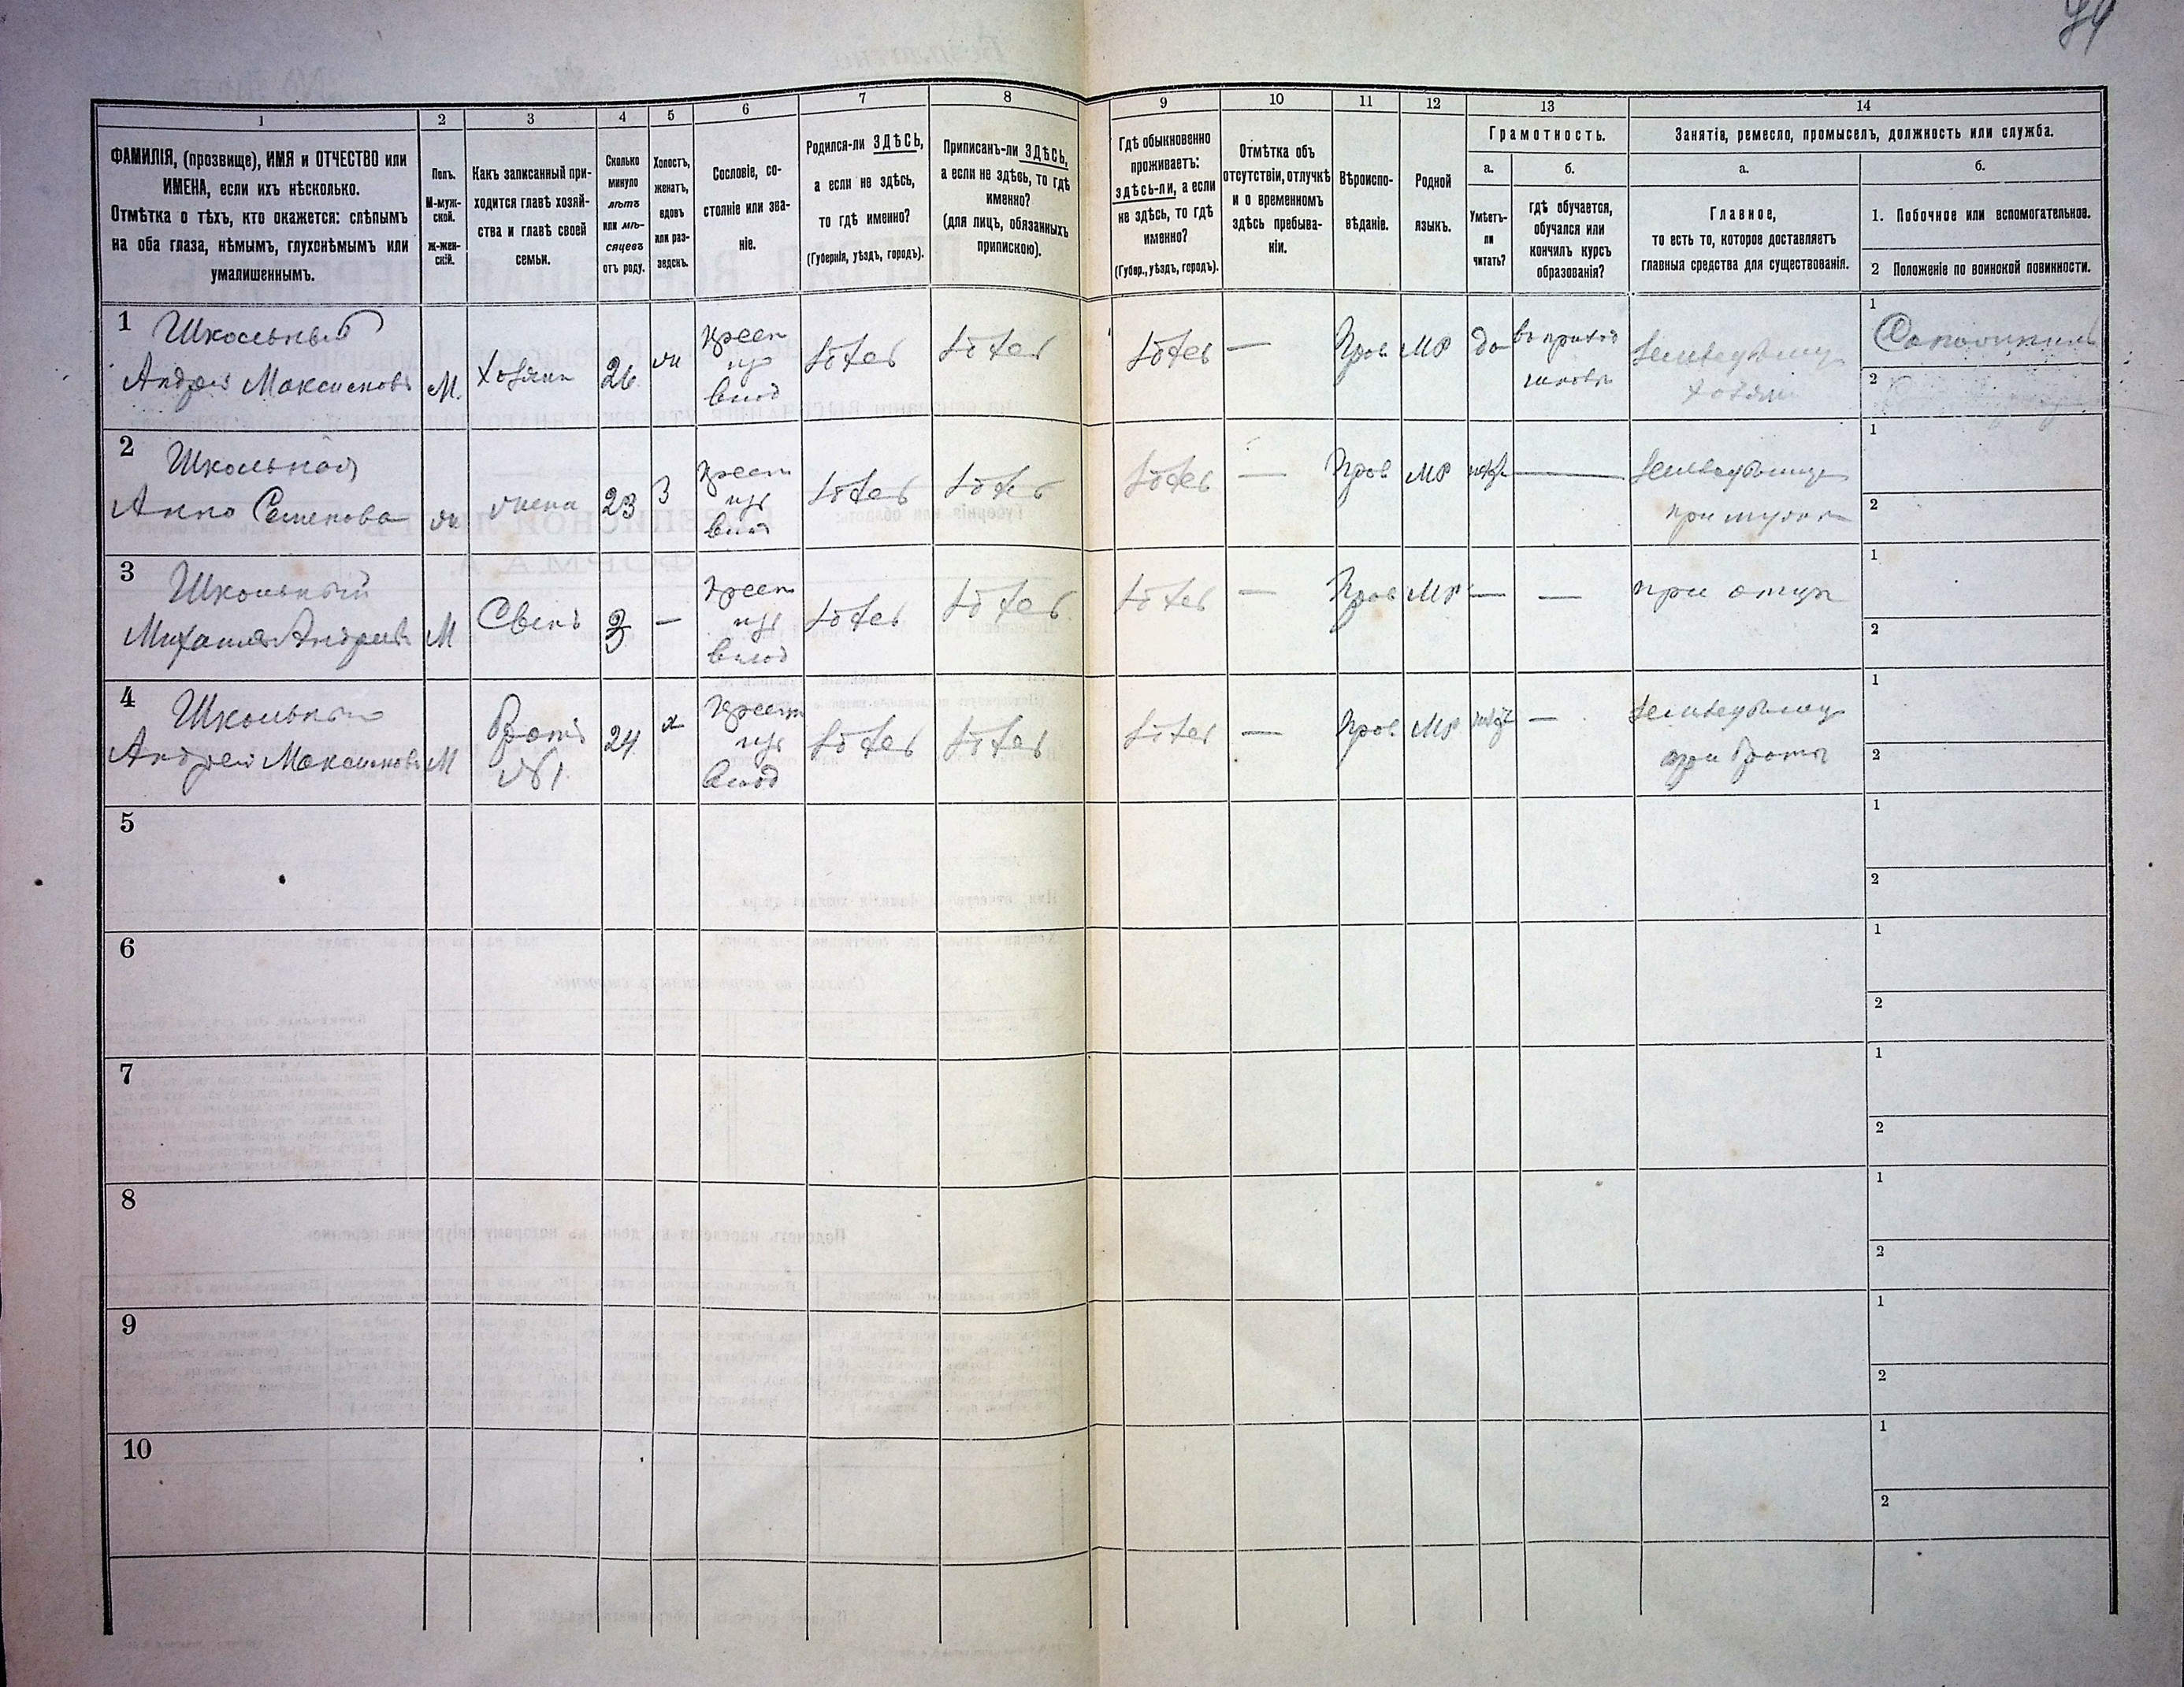 94
1
2
3
4
5
6
7
8
9
10
11
12
13
14
ФАМИЛІЯ, (прозвище), ИМЯ и ОТЧЕСТВО или
ИМЕНА, если ихъ нѣсколько.
Отмѣтка о тѣхъ, кто окажется: слѣпымъ
на оба глаза, нѣмымъ, глухонѣмымъ или
умалишеннымъ.
Полъ.
М-муж-
ской.
Ж-жен-
скій.
Какъ записанный при-
ходится главѣ хозяй-
ства и главѣ своей
семьи.
Сколько
минуло
лѣтъ
или мѣ-
сяцевъ
отъ роду.
Холостъ,
женатъ,
вдовъ
или раз-
веденъ.
Сословіе, со-
стояніе или зва-
ніе.
Родился-ли ЗДѢСЬ,
а если не здѣсь,
то гдѣ именно?
(Губернія, уѣздъ, городъ).
Приписанъ-ли ЗДѢСЬ,
а если не здѣсь, то гдѣ
именно?
(для лицъ, обязанныхъ
припискою).
Гдѣ обыкновенно
проживаетъ:
здѣсь-ли, а если
не здѣсь, то гдѣ
именно?
(Губер., уѣздъ, городъ).
Отмѣтка объ
отсутствіи, отлучкѣ
и о временномъ
здѣсь пребыва-
ніи.
Вѣроиспо-
вѣданіе.
Родной
языкъ.
Грамотность.
а.
Умѣетъ-
ли
читать?
б.
гдѣ обучается,
обучался или
кончилъ курсъ
образованія?
Занятія, ремесло, промыселъ, должность или служба.
а.
Главное,
то есть то, которое доставляетъ
главныя средства для существованія.
б.
1. Побочное или вспомогательное.
2 Положеніе по воинской повинности.
1 Школьный
Андрей Максимовъ
М.
Хозяинъ
26
ж
крест
изъ
влад
здѣсь
здѣсь
здѣсь
—
Прав
МР
да
земледѣлец
хозяин
1
2
2 Школьная
Анна Семенова
ж
жена
23
З
крест
изъ
влад
здѣсь
здѣсь
здѣсь
—
Прав
МР
—
земледѣлец
при мужѣ
1
2
3 Школьный
Михаилъ Андреевъ
М
Сынъ
3
—
крест
изъ
влад
здѣсь
здѣсь
здѣсь
—
Прав
МР
—
—
при отцѣ
1
2
4 Школьный
Андрей Максимовъ
М
Братъ
24
х
крест
изъ
влад
здѣсь
здѣсь
здѣсь
—
Прав
МР
—
земледѣлец
при братѣ
1
2
5
1
2
6
1
2
7
1
2
8
1
2
9
1
2
10
1
2